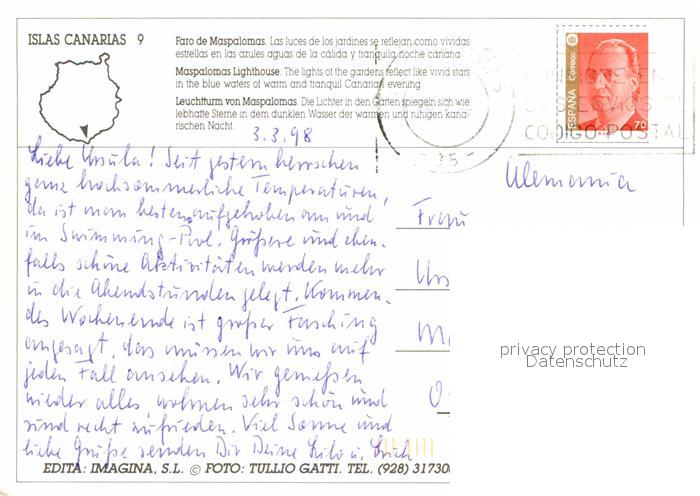 ISLAS CANARIAS 9
Faro de Maspalomas. Las luces de los jardines se reflejan como vividas
estrellas en las azules aguas de la cálida y tranquila noche canaria
Maspalomas Lighthouse. The lights of the gardens reflect like vivid stars
in the blue waters of warm and tranquil Canarian evening
Leuchtturm von Maspalomas. Die Lichter in den Gärten spiegeln sich wie
lebhafte Sterne in dem dunklen Wasser der warmen und ruhigen kana-
rischen Nacht.
ESPAÑA Correos
70
CODIGO POSTAL
3.3.98
Liebe Ursula! Seit gestern herrschen
ganz hochsommerliche Temperaturen,
da ist man bestens aufgehoben am und
im Swimming-Pool. Größere und eben-
falls schöne Aktivitäten werden mehr
in die Abendstunden gelegt. Kommen-
des Wochenende ist großer Fasching
angesagt, das müssen wir uns auf
jeden Fall ansehen. Wir genießen
wieder alles, wohnen sehr schön und
sind recht zufrieden. Viel Sonne und
liebe Grüße senden Dir Deine Lilo u. Erich
Alemania
Frau
Urs
privacy protection
Datenschutz
EDITA: IMAGINA, S.L. © FOTO: TULLIO GATTI. TEL. (928) 31730